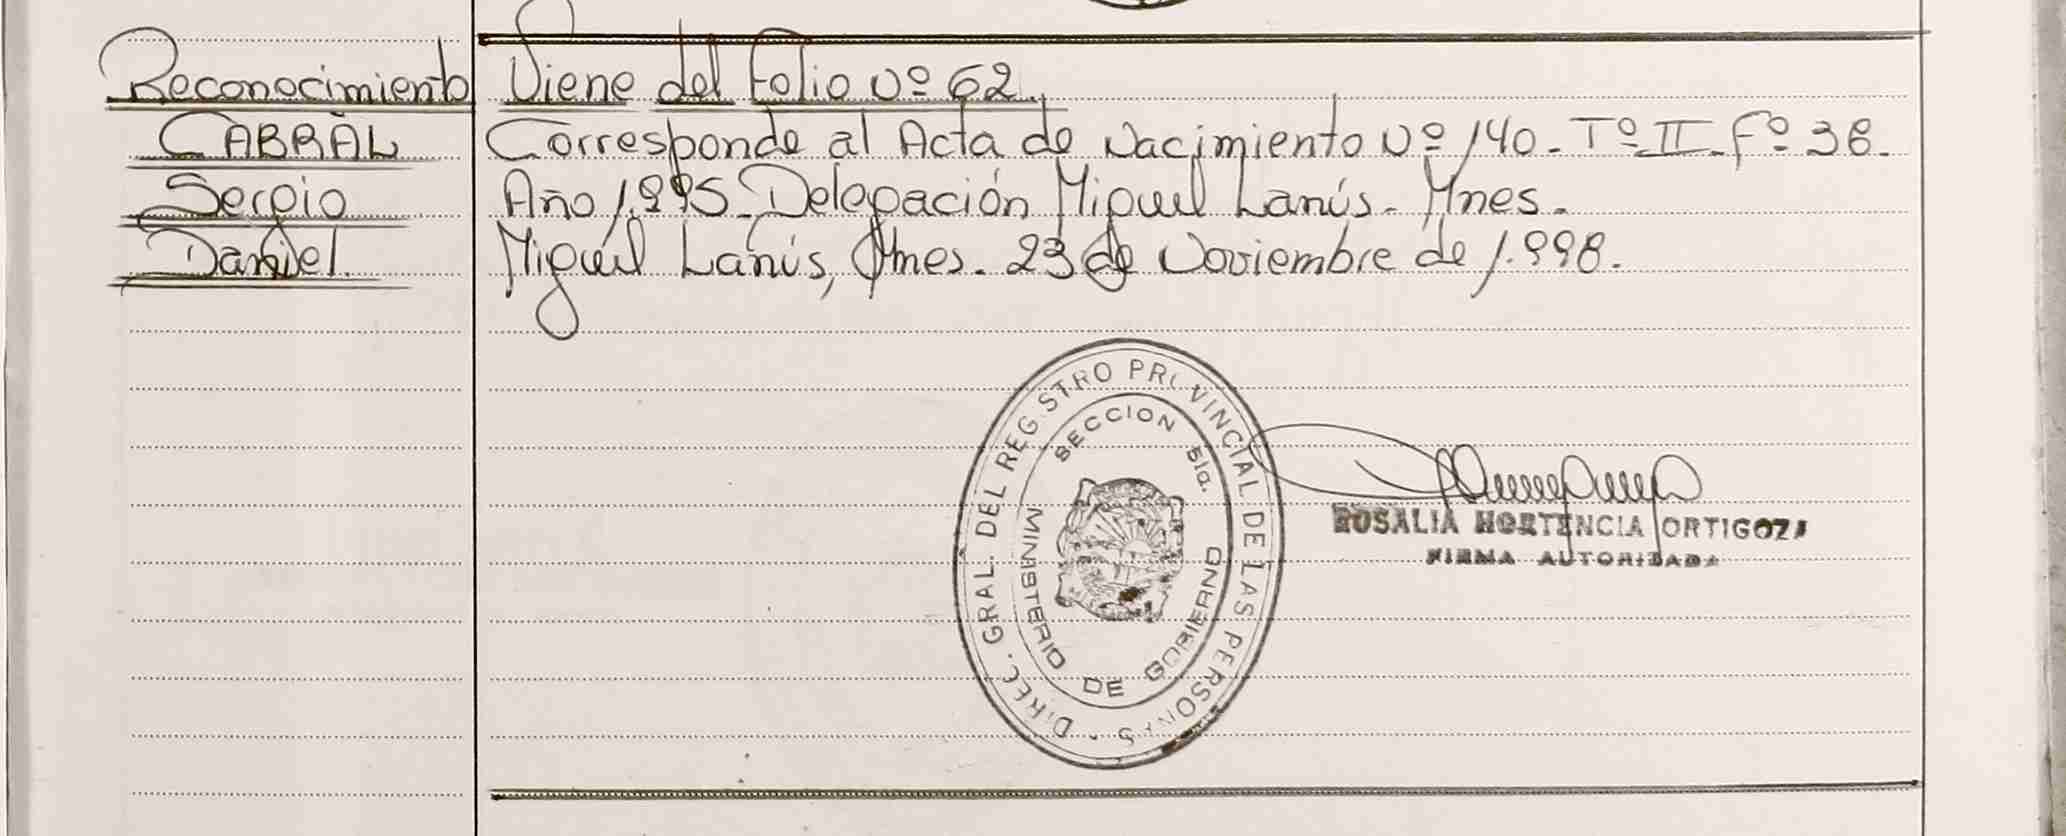 Reconocimiento
CABRAL
Sergio
Daniel.
Viene del Folio Nº 62.
Corresponde al Acta de Nacimiento Nº 140. Tº II. Fº 38.
Año 1.995. Delegación Miguel Lanús. Mnes.
Miguel Lanús, Mnes. 23 de Noviembre de 1.998.
DIREC. GRAL. DEL REGISTRO PROVINCIAL DE LAS PERSONAS
SECCION 5ta.
MINISTERIO DE GOBIERNO
ROSALIA HORTENCIA ORTIGOZA
FIRMA AUTORIZADA